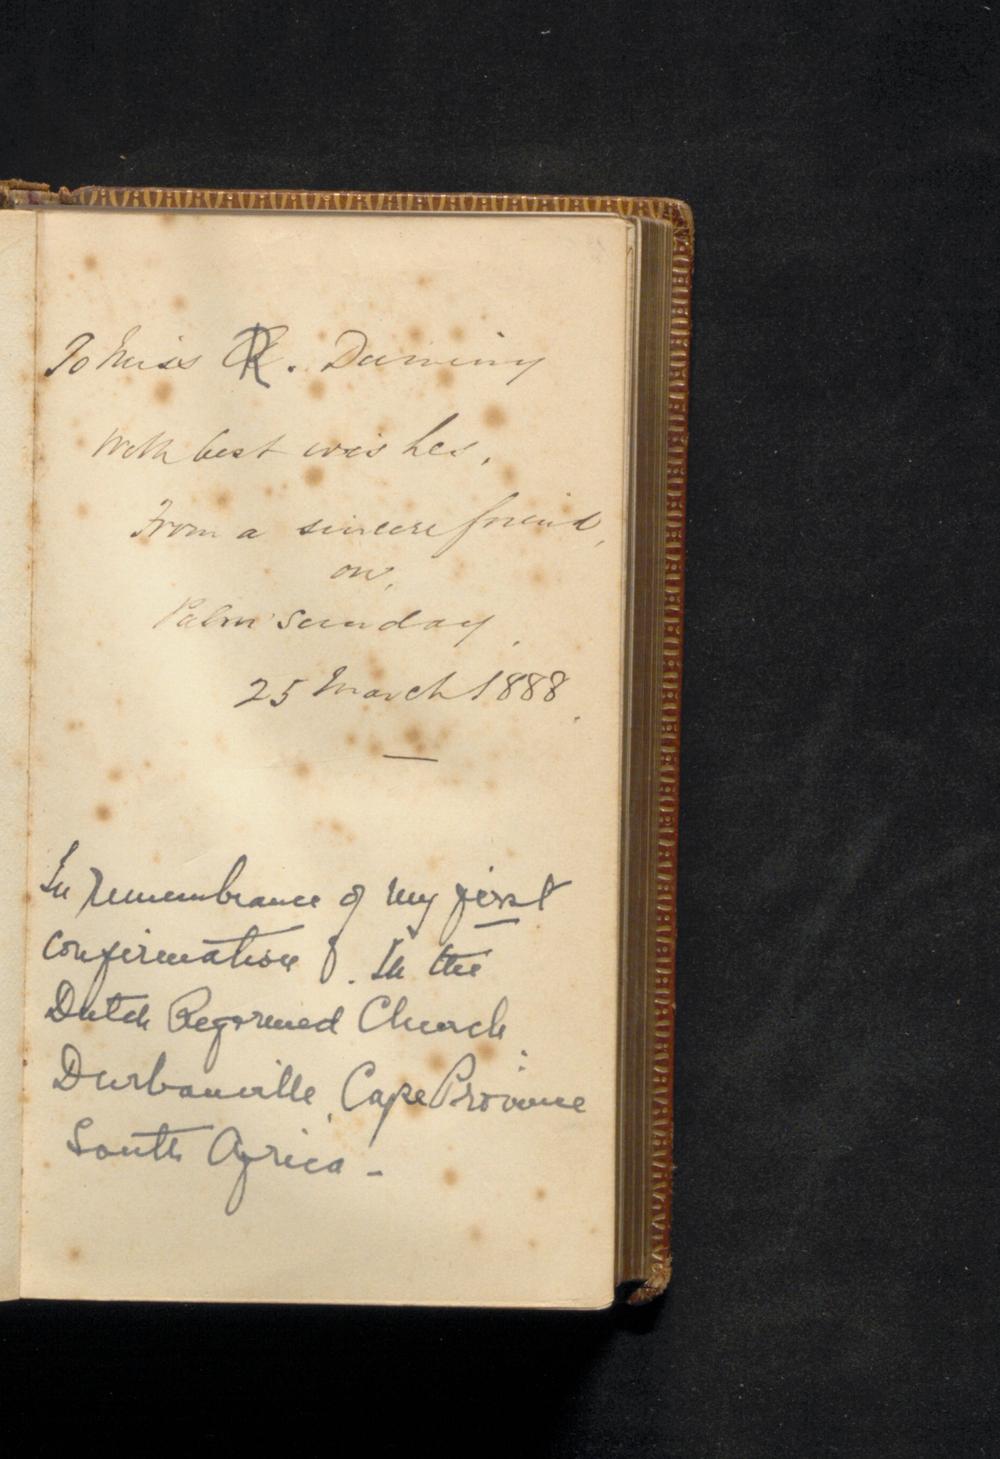 To Miss R. Duminy
With best wishes,
From a sincere friend,
on,
Palm Sunday,
25 March 1888.
In remembrance of my first
confirmation. In the
Dutch Reformed Church
Durbanville, Cape Province
South Africa -